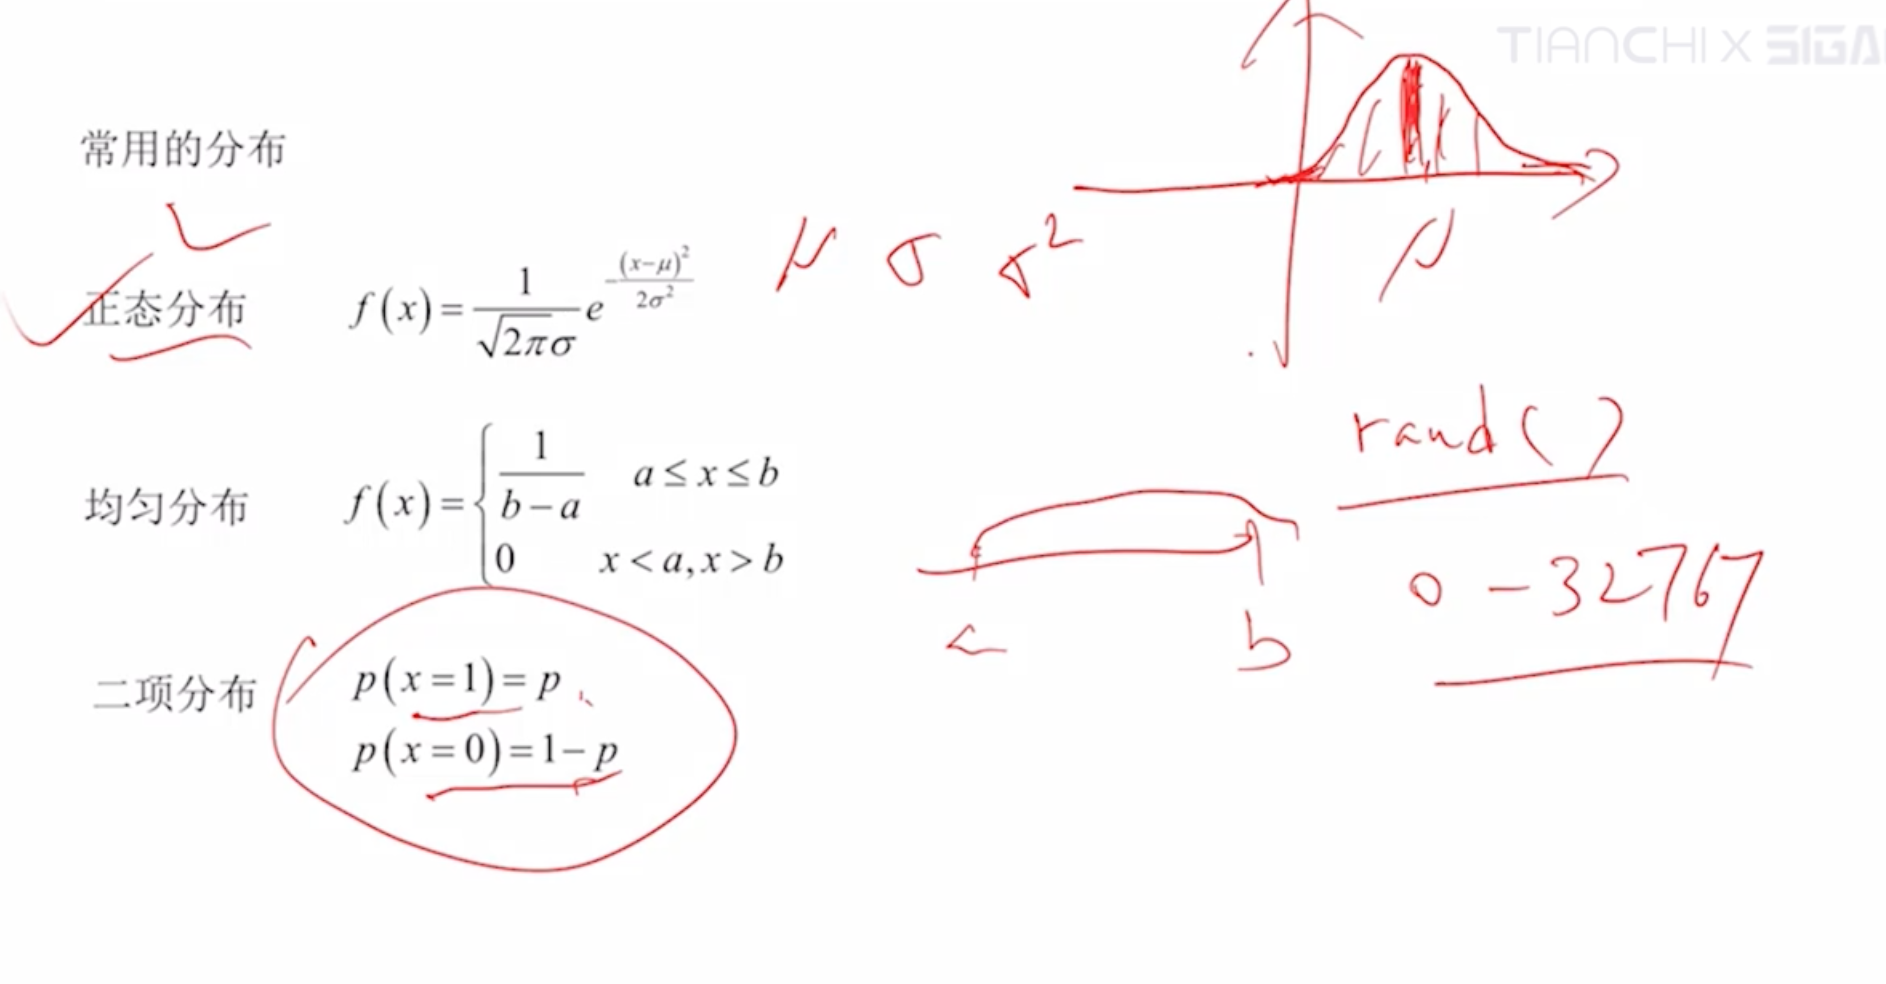 TIANCHI X SIGA
常用的分布
正态分布 f(x)=\frac{1}{\sqrt{2π}σ}e^{-\frac{(x-μ)^2}{2σ^2}} μ σ σ² μ
rand()
均匀分布 f(x)=\begin{cases}\frac{1}{b-a} & a≤x≤b\\0 & x<a,x>b\end{cases}
0-32767
a b
二项分布 p(x=1)=p
p(x=0)=1-p